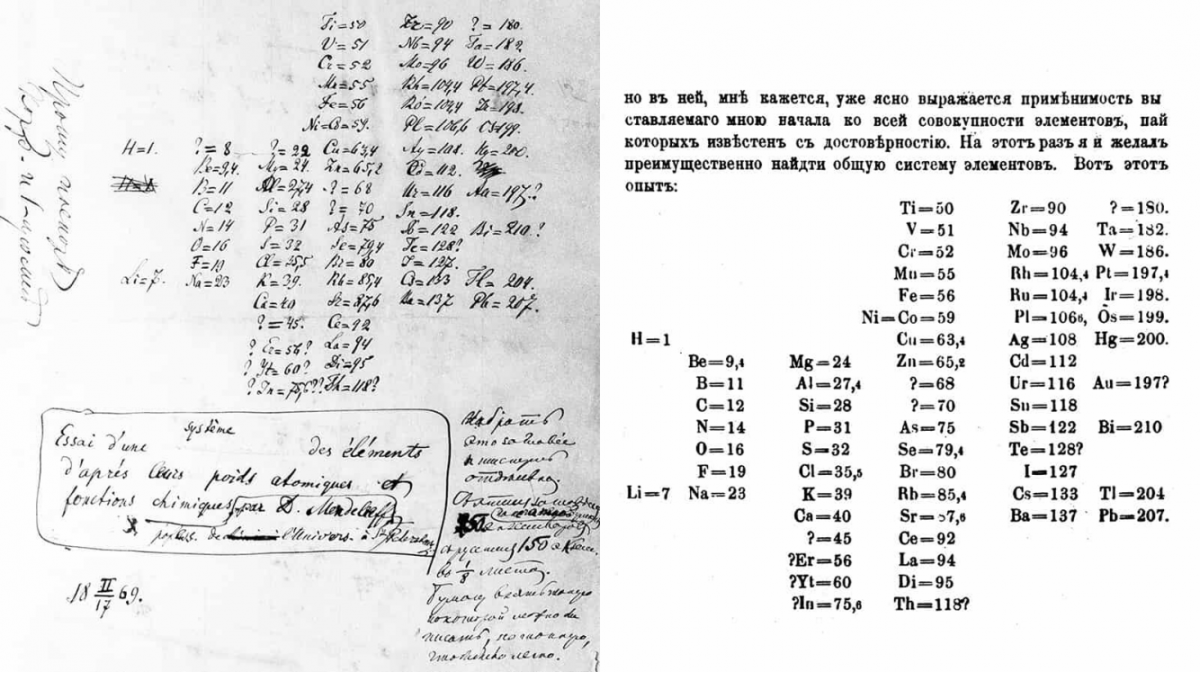 Ti=50 Zr=90 ?=180.
V=51 Nb=94 Ta=182.
Cr=52 Mo=96 W=186.
Mn=55 Rh=104,4 Pt=197,4.
Fe=56 Ru=104,4 Ir=198.
Ni=Co=59. Pl=106,6 Os=199.
H=1. ?=8 ?=22 Cu=63,4 Ag=108. Hg=200.
Be=9,4. Mg=24 Zn=65,2 Cd=112.
B=11 Al=27,4 ?=68 Ur=116 Au=197?
C=12 Si=28 ?=70 Sn=118.
N=14 P=31 As=75 Sb=122 Bi=210?
O=16 S=32 Se=79,4 Te=128?
F=19 Cl=35,5 Br=80 I=127.
Li=7. Na=23 K=39. Rb=85,4 Cs=133 Tl=204.
Ca=40 Sr=87,6 Ba=137 Pb=207.
?=45. Ce=92
?Er=56? La=94
?Yt=60? Di=95
?In=75,6?? Th=118?
Essai d'une système des éléments
d'après leurs poids atomiques et
fonctions chimiques par D. Mendeleeff
profess. de l'Univers. à St Petersbourg
18 II/17 69.
Набрать
это заглавие
отдельно.
150
въ 1/8 листа.
Бумагу
писать,
но въ ней, мнѣ кажется, уже ясно выражается примѣнимость вы
ставляемаго мною начала ко всей совокупности элементовъ, пай
которыхъ извѣстенъ съ достовѣрностію. На этотъ разъ я и желалъ
преимущественно найдти общую систему элементовъ. Вотъ этотъ
опытъ:
Ti=50 Zr=90 ?=180.
V=51 Nb=94 Ta=182.
Cr=52 Mo=96 W=186.
Mn=55 Rh=104,4 Pt=197,4
Fe=56 Ru=104,4 Ir=198.
Ni=Co=59 Pl=1066, Os=199.
H=1 Cu=63,4 Ag=108 Hg=200.
Be=9,4 Mg=24 Zn=65,2 Cd=112
B=11 Al=27,4 ?=68 Ur=116 Au=197?
C=12 Si=28 ?=70 Sn=118
N=14 P=31 As=75 Sb=122 Bi=210
O=16 S=32 Se=79,4 Te=128?
F=19 Cl=35,5 Br=80 I=127
Li=7 Na=23 K=39 Rb=85,4 Cs=133 Tl=204
Ca=40 Sr=87,6 Ba=137 Pb=207.
?=45 Ce=92
?Er=56 La=94
?Yt=60 Di=95
?In=75,6 Th=118?